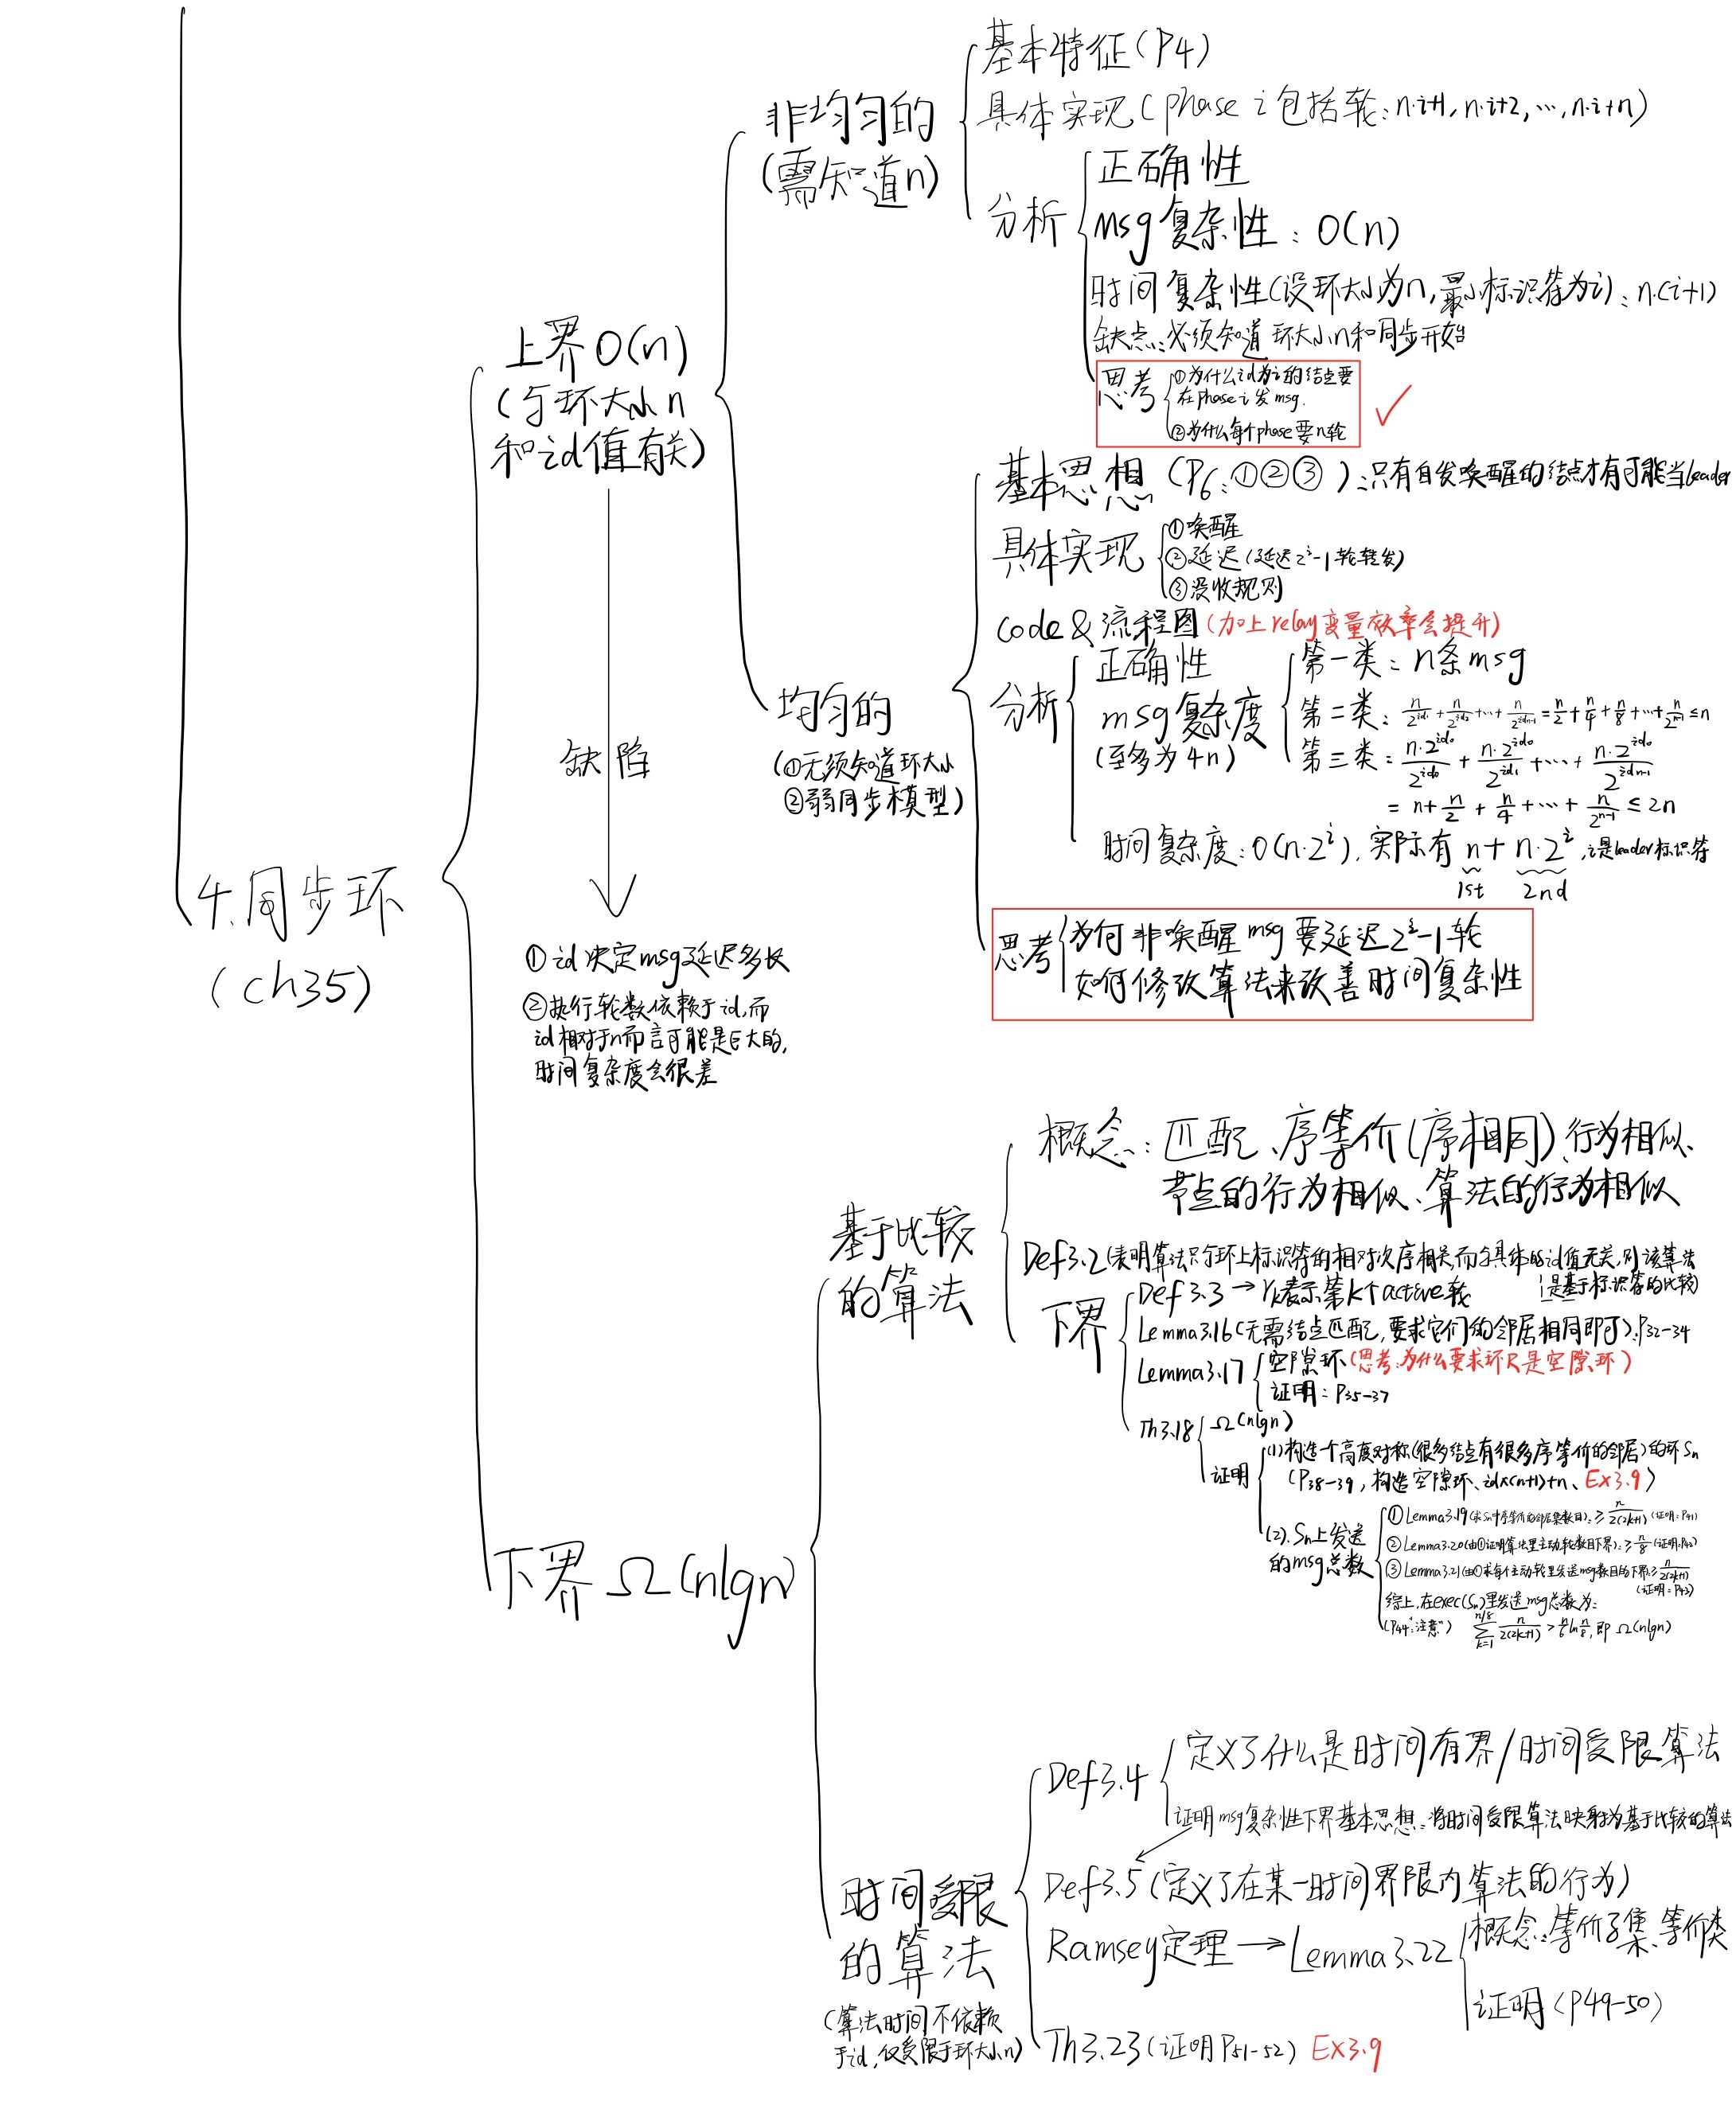 4.同步环
(ch35)
上界O(n)
(与环大小n
和id值有关)
缺陷
①id决定msg延迟多长
②执行轮数依赖于id,而
id相对于n而言可能是巨大的,
时间复杂度会很差
非均匀的
(需知道n)
基本特征(P4)
具体实现(phase i包括轮:n·i+1,n·i+2,…,n·i+n)
分析
正确性
msg复杂性:O(n)
时间复杂性(设环大小为n,最小标识符为i):n·(i+1)
缺点:必须知道环大小n和同步开始
思考
①为什么id为i的结点要
在phase i发msg.
②为什么每个phase要n轮
均匀的
(①无须知道环大小
②弱同步模型)
基本思想(P6:①②③):只有自发唤醒的结点才有可能当leader
具体实现
①唤醒
②延迟(延迟2^i-1轮转发)
③没收规则
code&流程图(加上relay变量效率会提升)
分析
正确性
msg复杂度
(至多为4n)
第一类:n条msg
第二类:n/2^id₁+n/2^id₂+…+n/2^idn-1=n/2+n/4+n/8+…+n/2^n-1≤n
第三类=n·2^id₀/2^id₀+n·2^id₀/2^id₁+…+n·2^id₀/2^idn-1
=n+n/2+n/4+…+n/2^n-1≤2n
时间复杂度:O(n·2^i),实际有n+n·2^i,i是leader标识符
1st 2nd
思考
为何非唤醒msg要延迟2^i-1轮
如何修改算法来改善时间复杂性
下界Ω(nlgn)
基于比较
的算法
概念:匹配、序等价(序相同)、行为相似、
节点的行为相似、算法的行为相似
Def3.2(表明算法只与环上标识符的相对次序相关,而与具体的id值无关,则该算法
是基于标识符的比较)
下界
Def3.3→rk表示第k个active轮
Lemma3.16(无需结点匹配,要求它们的邻居相同即可):P32-34
Lemma3.17
空隙环(思考:为什么要求环R是空隙环)
证明:P35-37
Th3.18
Ω(nlgn)
证明
(1)构造一个高度对称(很多结点有很多序等价的邻居)的环Sn
(P38-39,构造空隙环、idx(n+1)+n、Ex3.9)
(2).Sn上发送
的msg总数
①Lemma3.19(求Sn中序等价的邻居集数目):≥n/2(2k+1)(证明:P41)
②Lemma3.20(由①证明算法里主动轮数目下界):≥n/8(证明:P42)
③Lemma3.21(由①求每个主动轮里发送msg数目的下界):≥n/2(2k+1)
(证明:P43)
综上,在exec(Sn)里发送msg总数为:
(P44"注意") n/8∑k=1 n/2(2k+1)>n/6 ln n/8,即Ω(nlgn)
时间受限
的算法
(算法时间不依赖
于id,仅受限于环大小n)
Def3.4
定义了什么是时间有界/时间受限算法
证明msg复杂性下界基本思想:将时间受限算法映射为基于比较的算法
Def3.5(定义了在某一时间界限内算法的行为)
Ramsey定理→Lemma3.22
概念:等价子集、等价类
证明(P49-50)
Th3.23(证明P51-52) Ex3.9